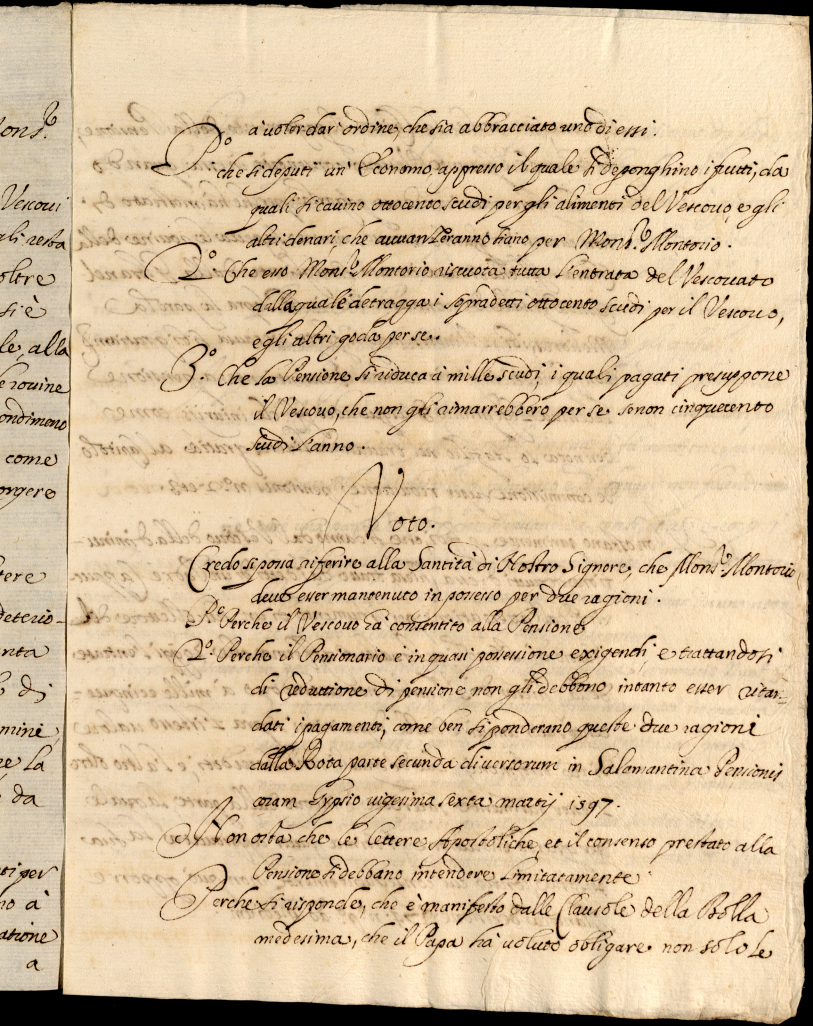 a voler dar ordine, che sia abbracciato uno di essi.
P.º che si deputi un' Economo, appresso il quale si deponghino i frutti, da
quali si cavino ottocento scudi per gli alimenti del Vescovo, e gli
altri denari, che avvanzeranno siano per Mons.r Montorio.
2.º Che esso Mons.r Montorio riscuota tutta l'entrata del Vescovato
dalla quale detragga i sopradetti ottocento scudi per il Vescovo,
e gli altri goda per se.
3.º Che la Pensione si riduca à mille scudi, i quali pagati presuppone
il Vescovo, che non gli rimarrebbero per se se non cinquecento
scudi l'anno.
Voto.
Credo si possa riferire alla Santità di Nostro Signore, che Mons.r Montorio
deve esser mantenuto in possesso per due ragioni.
P.º Perche il Vescovo hà consentito alla Pensione
2.º Perche il Pensionario è in quasi possessione exigendi, e trattandosi
di reduttione di pensione non gli debbono intanto esser ritar-
dati i pagamenti, come ben si ponderano queste due ragioni
dalla Rota parte secunda diversorum in Salamantina Pensionis
coram Gypsio vigesima sexta martij 1597.
Non osta che le lettere Apostoliche, et il consenso prestato alla
Pensione si debbano intendere limitatamente
Perche si risponde, che è manifesto dalle Clausole della Bolla
medesima, che il Papa hà voluto obligare non solo le
ons.r
Vescovi
ali resta
oltre
si è
le, alla
e rovine
ondimeno
come
orgere
tere
deterio-
nta
di
mine,
ne la
da
ti per
no à
atione
a